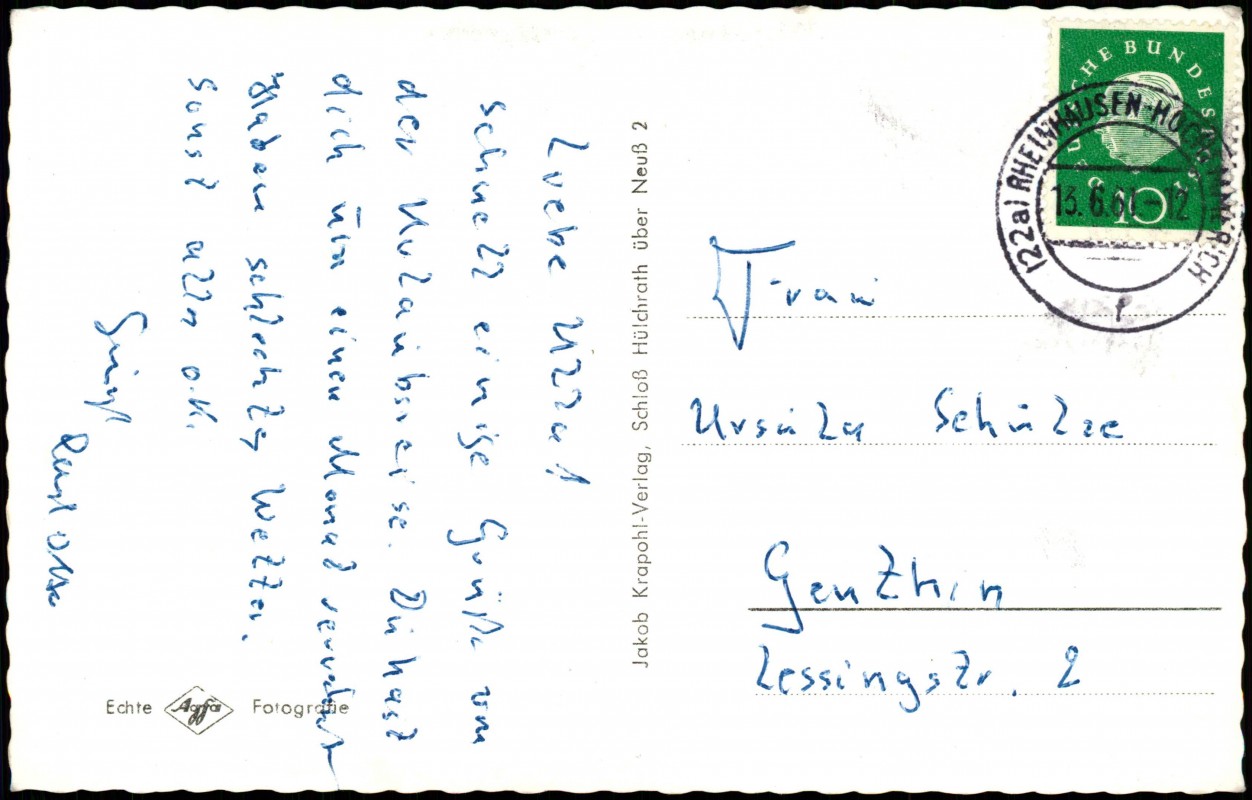 Liebe Ulla!
schnell einige Grüße von
der Urlaubsreise. Du hast
dich um einen Monat
Haben schlechtes Wetter,
sonst alles o.k.
Gruß
Echte Agfa Fotografie
Jakob Krapohl-Verlag, Schloß Hülchrath über Neuß 2
DEUTSCHE BUNDESPOST
10
(22a) RHEINHAUSEN-HOCHEMMERICH
13.6.61-12
f
Frau
Ursula Schulze
Genthin
Lessingstr. 2